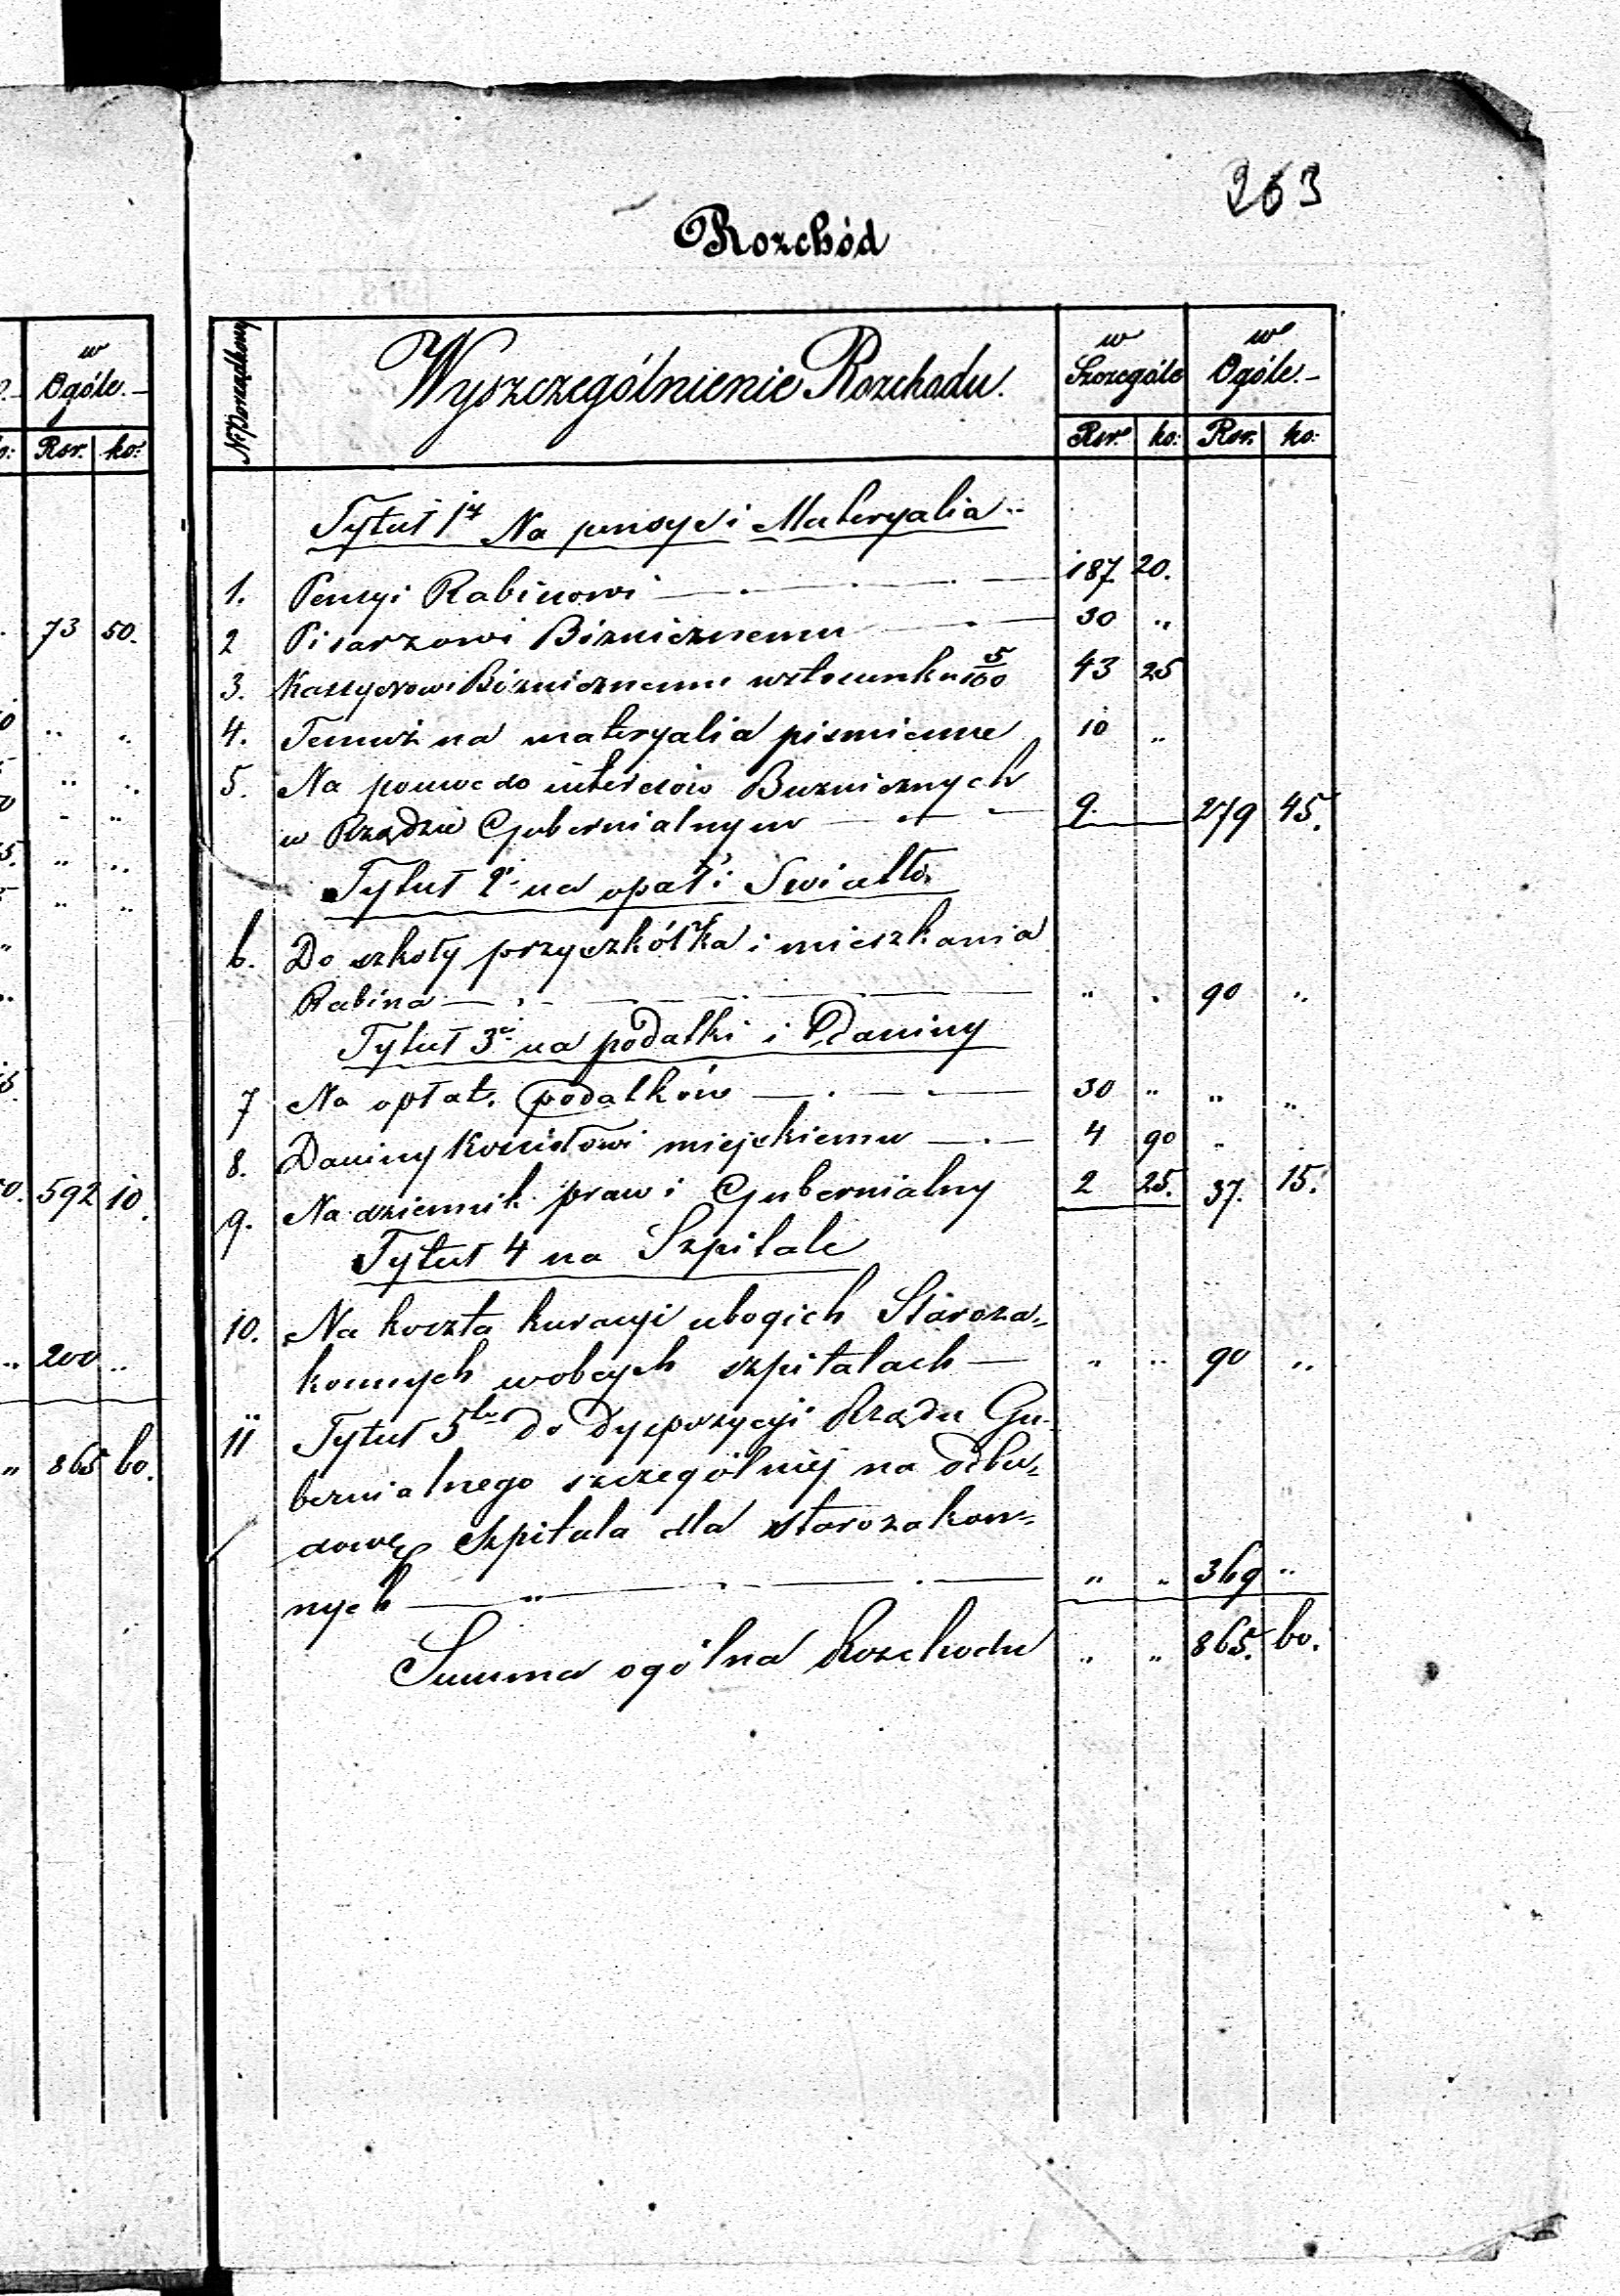 263
Rozchód
w
Ogóle.
Rsr. ko:
73 50.
592 10.
200 ..
865 60.
Nr Porządkowy
Wyszczególnienie Rozchodu.
w Szczególe
w Ogóle.
Rsr. ko: Rsr. ko:
Tytuł 1y Na pensye i Materyalia
1. Pensyi Rabinowi 187 20.
2 Pisarzowi Bóżnicznemu 30 "
3. Kassyerowi Bóżnicznemu w stosunku 5/100 43 25
4. Temuż na materyalia piśmienne 10 "
5. Na pomoc do interesów Bużnicznych
w Rządzie Gubernialnym 9. 279 45.
Tytuł 2i na opał i Swiatło
6. Do szkoły przyszkółka i mieszkania
Rabina " . 90 "
Tytuł 3i na podatki i Daniny
7 Na opłat. podatków 30 " " "
8. Daniny Kościołowi miejskiemu 4 90 " .
9. Na dziennik praw i Gubernialny 2 25. 37. 15.
Tytuł 4 na Szpitale
10. Na koszta kuracyi ubogich Staroza=
konnych w obcych szpitalach " " 90 "
11 Tytuł 5ty do Dyspozycyi Rządu Gu-
bernialnego szczególniej na odbu=
dowę Szpitala dla starozakon=
nych " " 369 "
Summa ogólna Rozchodu " " 865. 60.